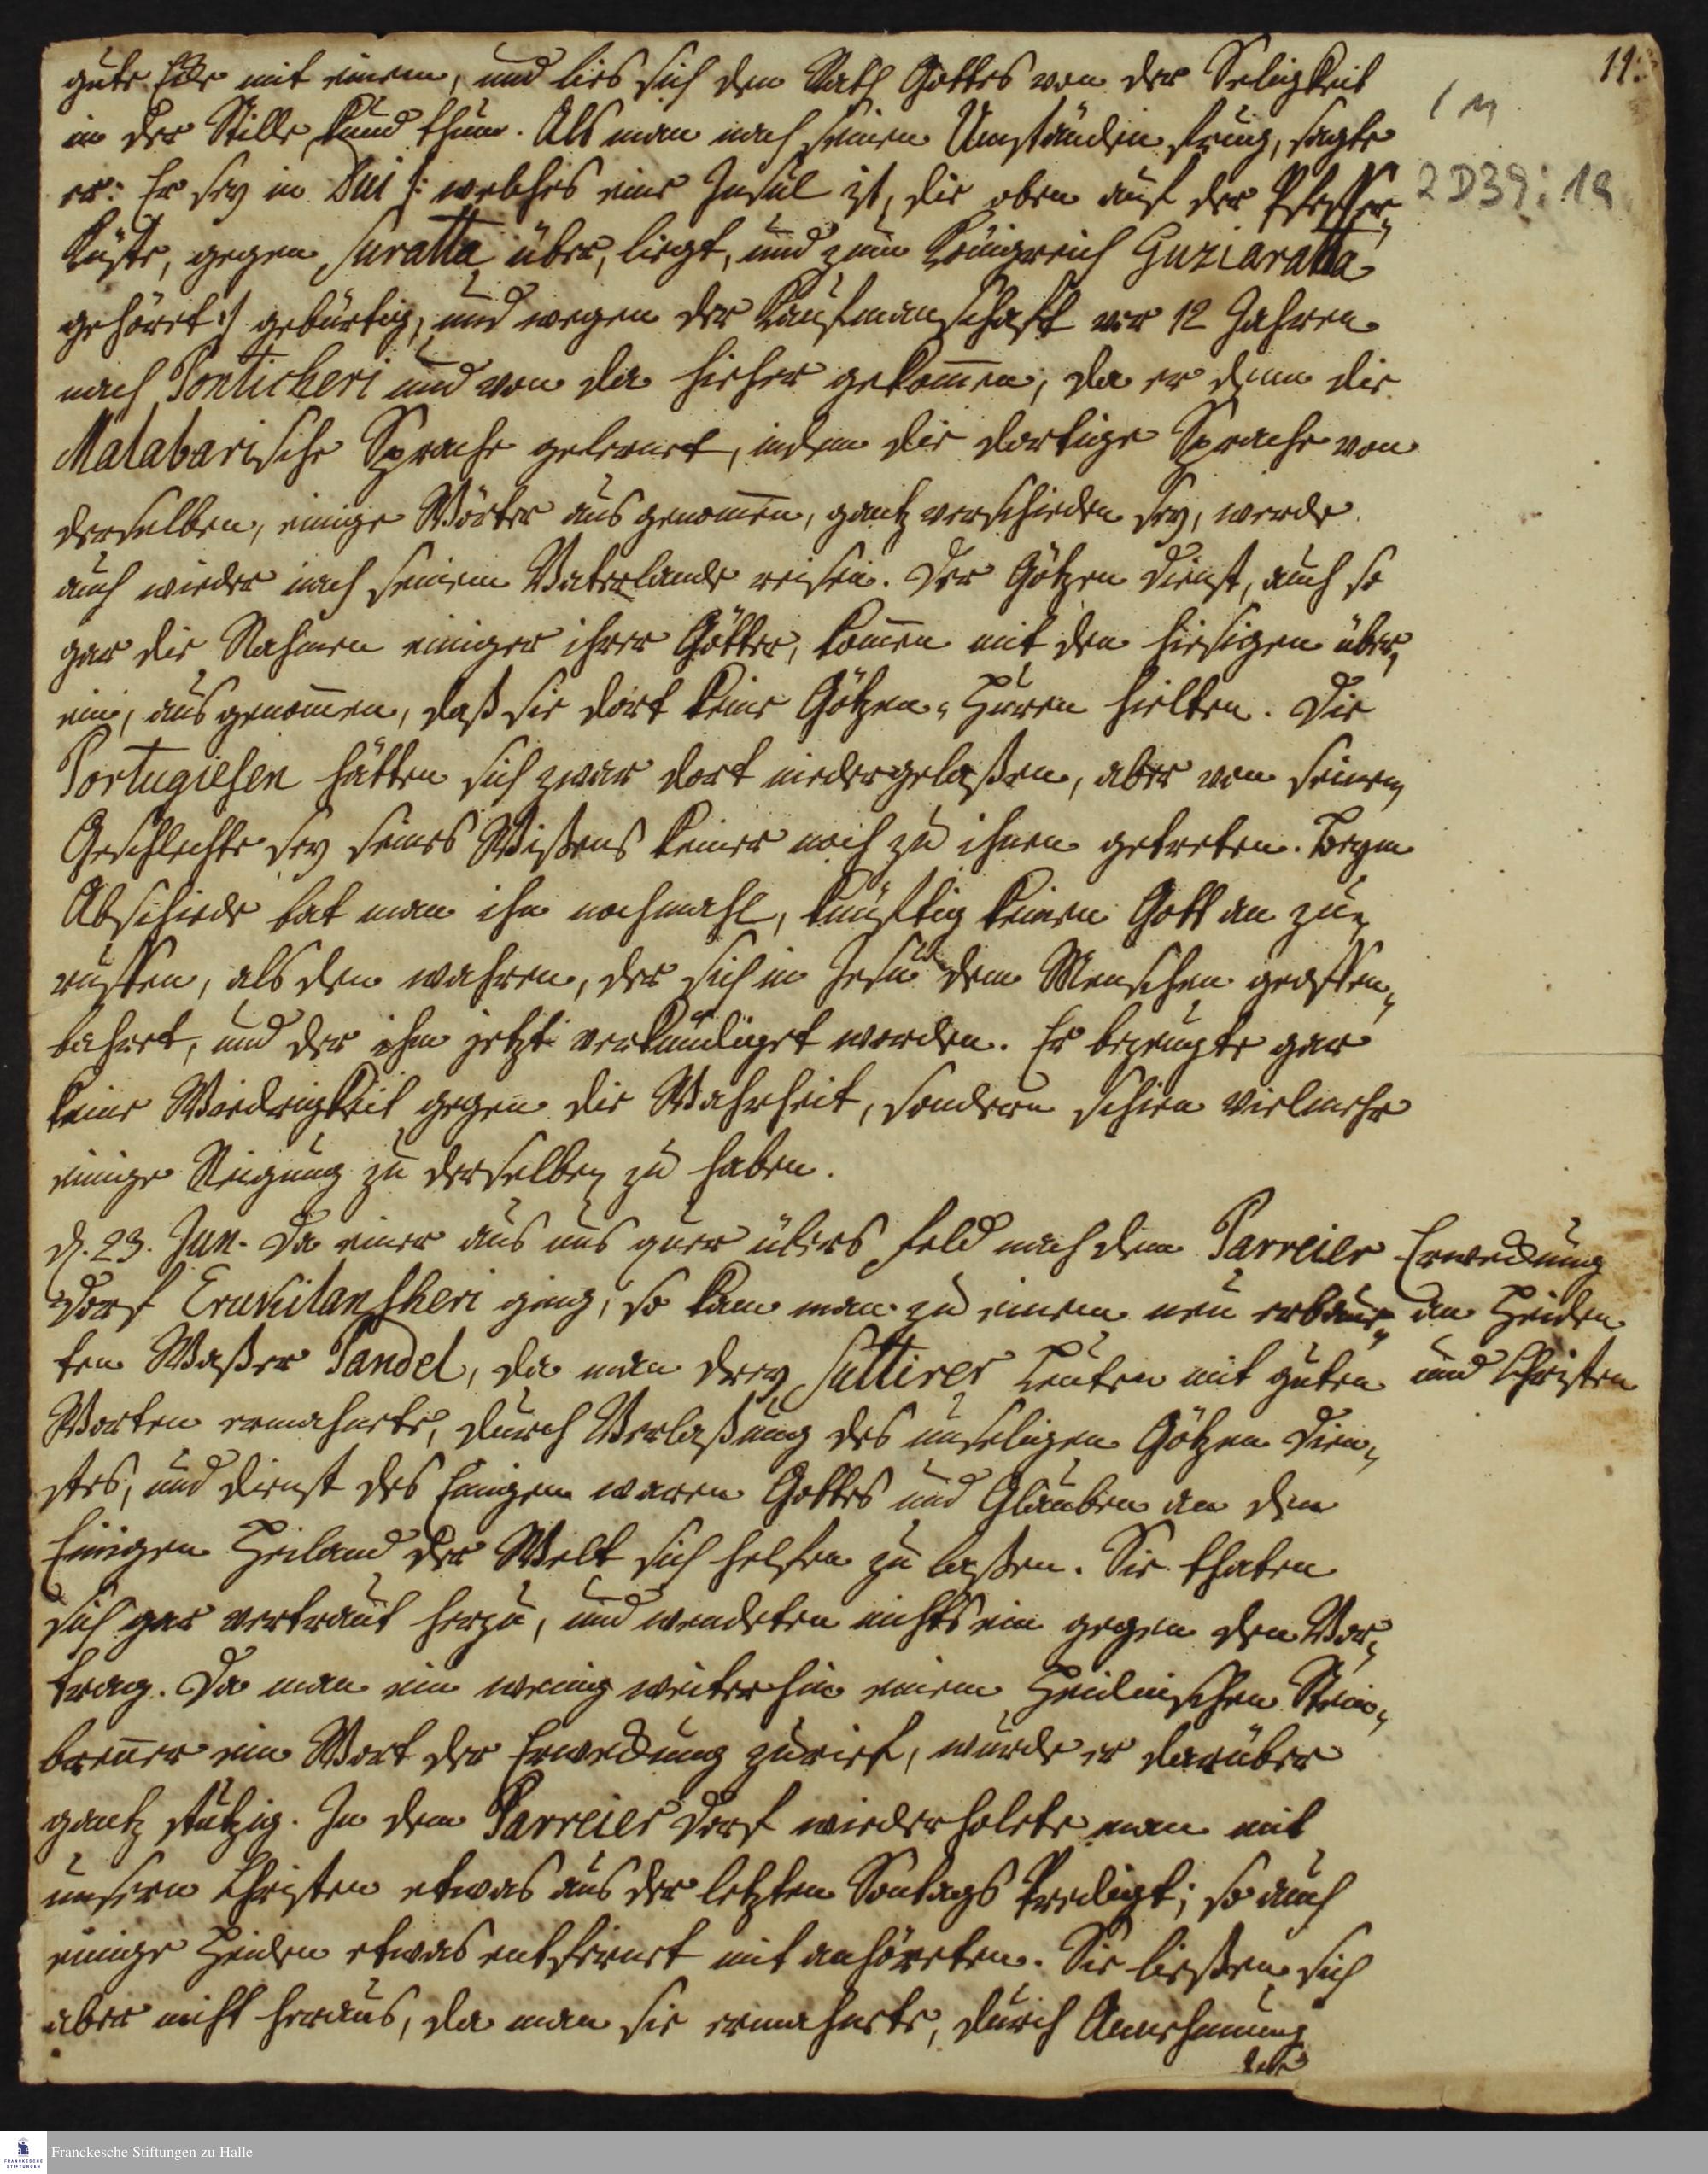 11
gute Ecke mit einem, und lies sich den Rath Gottes von der Seligkeit
in der Stille kund thun. Als man nach seinen Umständen frug, sagte
er: Er sey in Diu /: welches eine Insul ist, die oben auf der Pfeffer„
Küste, gegen Suratta über, liegt, und zum Königreich Guziaratta
gehöret :/ gebürtig, und wegen der Kaufmanschaft vor 12 Jahren
nach Ponticheri und von da hieher gekom̄en, da er denn die
Malabarische Sprache gelernet, indem die dortige Sprache von
derselben, einige Wörter ausgenom̄en, gantz verschieden sey, werde
auch wieder nach seinem Vaterlande reisen. Der Götzen Dienst, auch so
gar die Nahmen einiger ihrer Götter, kom̄en mit den hiesigen über„
ein, ausgenom̄en, daß sie dort keine Götzen-Huren hielten. Die
Portugiesen hätten sich zwar dort niedergelaßen, aber von seinem
Geschlechte sey seines Wißens keiner noch zu ihnen getreten. Beym
Abschiede bat man ihn nochmahl, künftig keinen Gott an zu„
ruffen, als den wahren, der sich in Jesu dem Menschen geoffen„
bahret, und der ihm jetzt verkündiget worden. Er bezeugte gar
keine Wiedrigkeit gegen die Wahrheit, sondern schien vielmehr
einige Neigung zu derselben zu haben.
d. 23. Jun. Da einer aus uns quer übers Feld nach dem Parreier
Dorf Erukitanscheri ging, so kam man zu einem neu erbaue„
ten Waßer Pandel, da man drey Suttirer Leuten mit guten
Worten ermahnete, durch Verlaßung des unseligen Götzen Dien„
stes, und Dienst des Einigen waren Gottes und Glauben an den
Einigen Heiland der Welt sich helfen zu laßen. Sie thaten
sich gar vertraut herzu, und wendeten nichts ein gegen den Vor„
trag. Da man ein wenig weiter hin einem Heidnischen Stein„
bren̄er ein Wort der Erweckung zurief, wurde er darüber
gantz stutzig. In dem Parreier Dorf wiederholete man mit
unsern Christen etwas aus der letzten Sontags Predigt; so auch
einige Heiden etwas entfernet mit anhöreten. Sie ließen sich
aber nicht heraus, da man sie ermahnete, durch Annehmung
2 D39:18
Erweckung
an Heiden
und Christen
Franckesche Stiftungen zu Halle